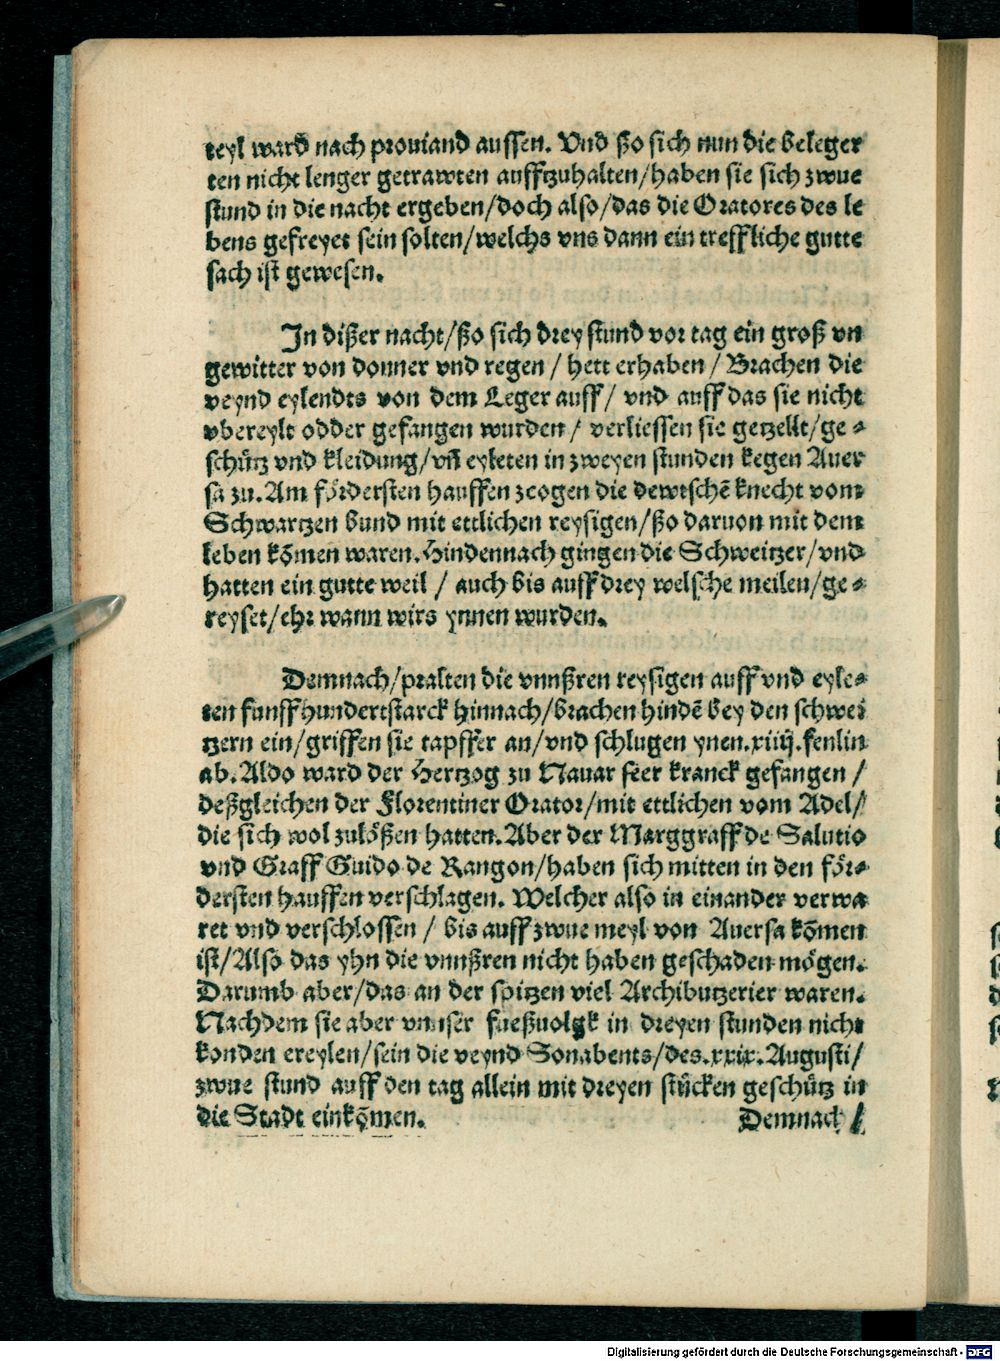 teyl ward nach prouiand aussen. Vnd ßo sich nun die beleger
ten nicht lenger getrawten auffzuhalten/haben sie sich zwue
stund in die nacht ergeben/doch also/das die Oratores des le
bens gefreyet sein solten/welchs vns dann ein treffliche gutte
sach ist gewesen.
In dißer nacht/ßo sich drey stund vor tag ein groß vn
gewitter von donner vnd regen / hett erhaben / Brachen die
veynd eylendts von dem Leger auff/ vnd auff das sie nicht
vbereylt odder gefangen wurden / verliessen sie getzellt/ge⸗
schütz vnd kleidung/vñ eyleten in zweyen stunden kegen Auer
sa zu. Am fördersten hauffen zcogen die dewtschē knecht vom
Schwartzen bund mit ettlichen reysigen/ßo daruon mit dem
leben kōmen waren. Hindennach gingen die Schweitzer/vnd
hatten ein gutte weil / auch bis auff drey welsche meilen/ge⸗
reyset/ehr wann wirs ynnen wurden.
Demnach/pralten die vnnßren reysigen auff vnd eyle⸗
ten funffhundertstarck hinnach/brachen hindē bey den schwei
tzern ein/griffen sie tapffer an/vnd schlugen ynen.xiiij.fenlin
ab. Aldo ward der Hertzog zu Nauar seer kranck gefangen /
deßgleichen der Florentiner Orator/mit ettlichen vom Adel/
die sich wol zulößen hatten. Aber der Marggraff de Salutio
vnd Graff Guido de Rangon/haben sich mitten in den för⸗
dersten hauffen verschlagen. Welcher also in einander verwa
ret vnd verschlossen / bis auff zwue meyl von Auersa kōmen
ist/Also das yhn die vnnßren nicht haben geschaden mögen.
Darumb aber/das an der spitzen viel Archibutzerier waren.
Nachdem sie aber vnnser fueßuolgk in dreyen stunden nicht
konden ereylen/sein die veynd Sonabents/des.xxix.Augusti/
zwue stund auff den tag allein mit dreyen stücken geschütz in
die Stadt einkōmen. Demnach /
Digitalisierung gefördert durch die Deutsche Forschungsgemeinschaft - DFG